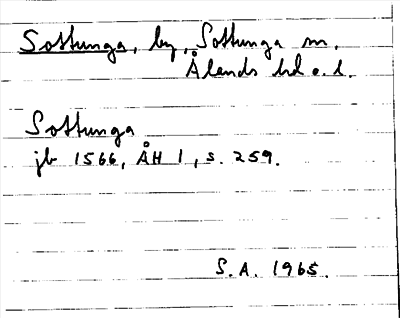 Sottunga, by, Sottunga sn,
Ålands hd o. l.
Sottunga
jb 1566, ÅH 1, s. 259.
S.A. 1965.